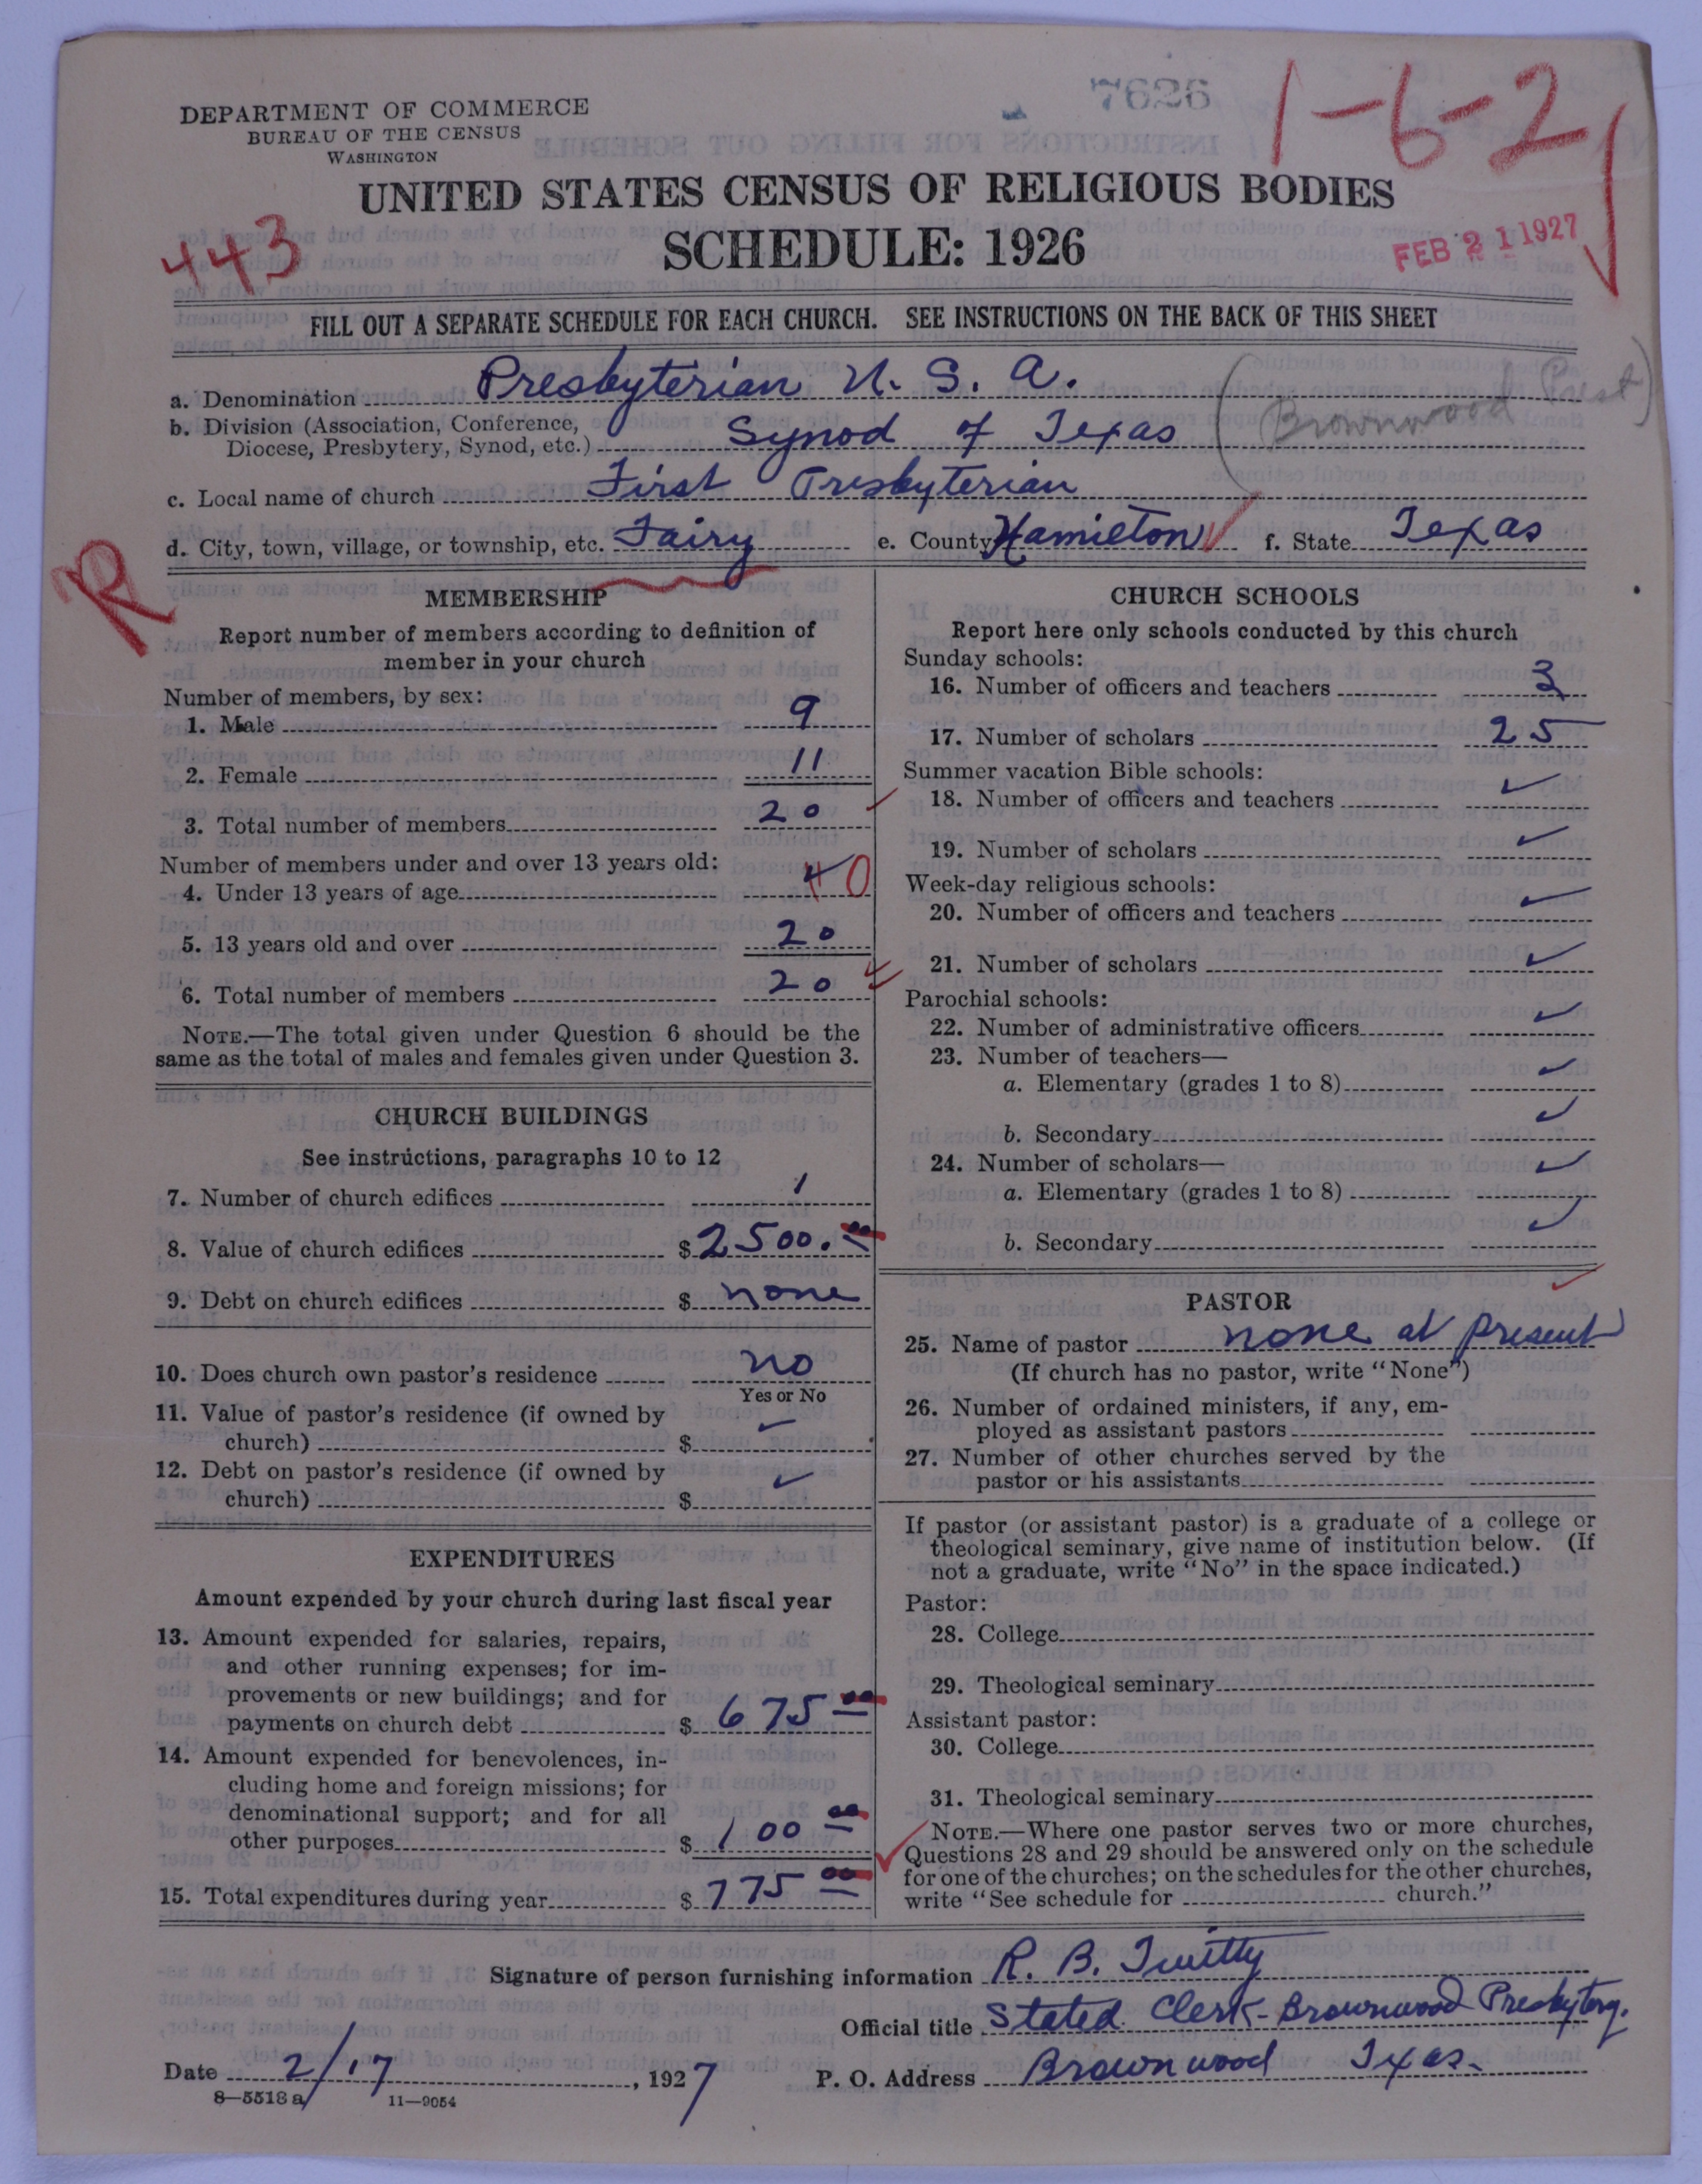 7626
1-6-2
DEPARTMENT OF COMMERCE
BUREAU OF THE CENSUS
WASHINGTON
UNITED STATES CENSUS OF RELIGIOUS BODIES
SCHEDULE: 1926
443
FEB 21 1927
FILL OUT A SEPARATE SCHEDULE FOR EACH CHURCH. SEE INSTRUCTIONS ON THE BACK OF THIS SHEET
a. Denomination Presbyterian U. S. A.
(Brownwood Prest)
b. Division (Association, Conference,
Diocese, Presbytery, Synod, etc.) Synod of Texas
c. Local name of church First Presbyterian
d. City, town, village, or township, etc. Fairy e. County Hamilton f. State Texas
R
MEMBERSHIP
Report number of members according to definition of
member in your church
Number of members, by sex:
1. Male 9
2. Female 11
3. Total number of members 20
Number of members under and over 13 years old:
4. Under 13 years of age 0
5. 13 years old and over 20
6. Total number of members 20
NOTE.—The total given under Question 6 should be the
same as the total of males and females given under Question 3.
CHURCH BUILDINGS
See instructions, paragraphs 10 to 12
7. Number of church edifices 1
8. Value of church edifices $2500.00
9. Debt on church edifices $ none
10. Does church own pastor's residence no
Yes or No
11. Value of pastor's residence (if owned by
church) $ ✓
12. Debt on pastor's residence (if owned by
church) $ ✓
EXPENDITURES
Amount expended by your church during last fiscal year
13. Amount expended for salaries, repairs,
and other running expenses; for im-
provements or new buildings; and for
payments on church debt $ 675 00
14. Amount expended for benevolences, in-
cluding home and foreign missions; for
denominational support; and for all
other purposes $ 100 00
15. Total expenditures during year $ 775 00
CHURCH SCHOOLS
Report here only schools conducted by this church
Sunday schools:
16. Number of officers and teachers 3
17. Number of scholars 25
Summer vacation Bible schools:
18. Number of officers and teachers ✓
19. Number of scholars ✓
Week-day religious schools:
20. Number of officers and teachers ✓
21. Number of scholars ✓
Parochial schools:
22. Number of administrative officers ✓
23. Number of teachers—
a. Elementary (grades 1 to 8) ✓
b. Secondary ✓
24. Number of scholars—
a. Elementary (grades 1 to 8) ✓
b. Secondary ✓
PASTOR
25. Name of pastor none at present
(If church has no pastor, write "None")
26. Number of ordained ministers, if any, em-
ployed as assistant pastors
27. Number of other churches served by the
pastor or his assistants
If pastor (or assistant pastor) is a graduate of a college or
theological seminary, give name of institution below. (If
not a graduate, write "No" in the space indicated.)
Pastor:
28. College
29. Theological seminary
Assistant pastor:
30. College
31. Theological seminary
NOTE.—Where one pastor serves two or more churches,
Questions 28 and 29 should be answered only on the schedule
for one of the churches; on the schedules for the other churches,
write "See schedule for church."
Signature of person furnishing information R. B. Twitty
Official title Stated Clerk - Brownwood Presbytery.
Date 2/17, 1927 P. O. Address Brownwood Texas.
8—5518 a 11—9054